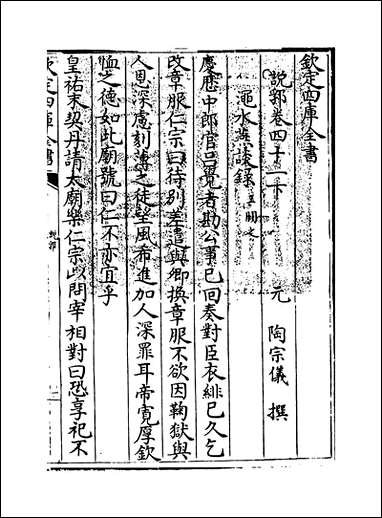 欽定四庫全書
說郛卷四十一下
元 陶宗儀 撰
澠水燕談録 王闢之
慶歴中郎官吕覺者勘公事已回奏對臣衣緋已久乞
改章服仁宗曰待别差遣與卿換章服不欲因鞫獄與
人恩深慮刻薄之徒望風希進加人深罪耳帝寛厚欽
恤之徳如此廟號曰仁不亦宜乎
皇祐末契丹請太廟樂仁宗以問宰相對曰恐享祀不
欽定四庫全書
說郛